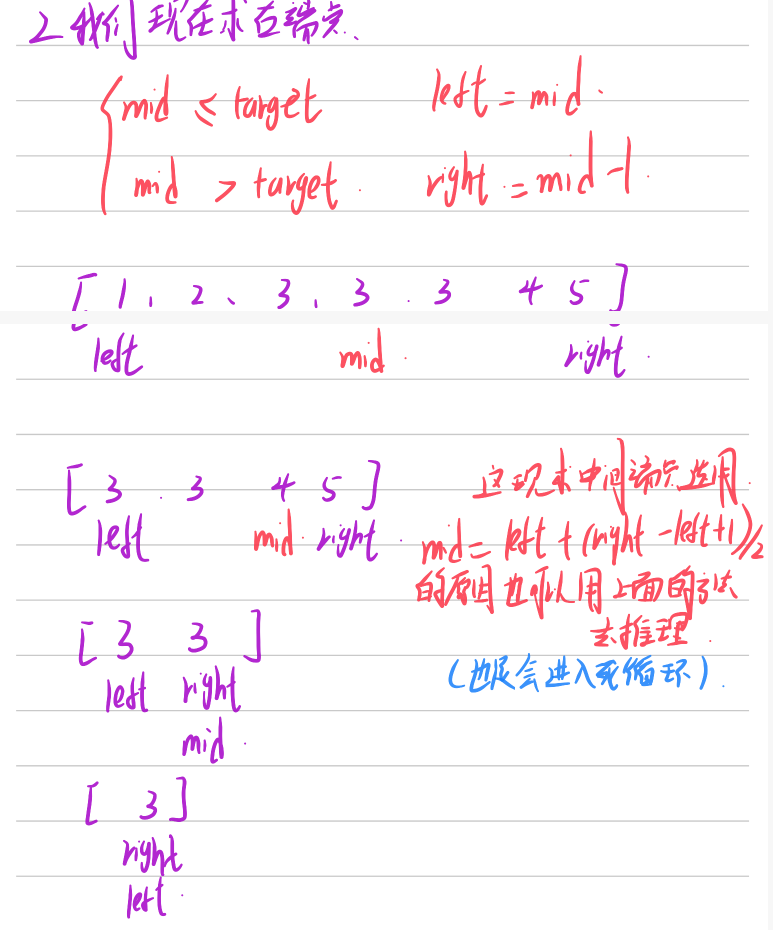 2、我们现在求右端点、
mid ≤ target left = mid.
mid > target. right = mid-1.
[1、2、3、3.3 4 5]
left mid. right.
[3.3 4 5]
left mid. right.
这现求中间端点选用
mid = left + (right - left+1)/2
的原因也可以用上面的方法
去推理.
(也是会进入死循环).
[3 3]
left right
mid.
[3]
right
left.